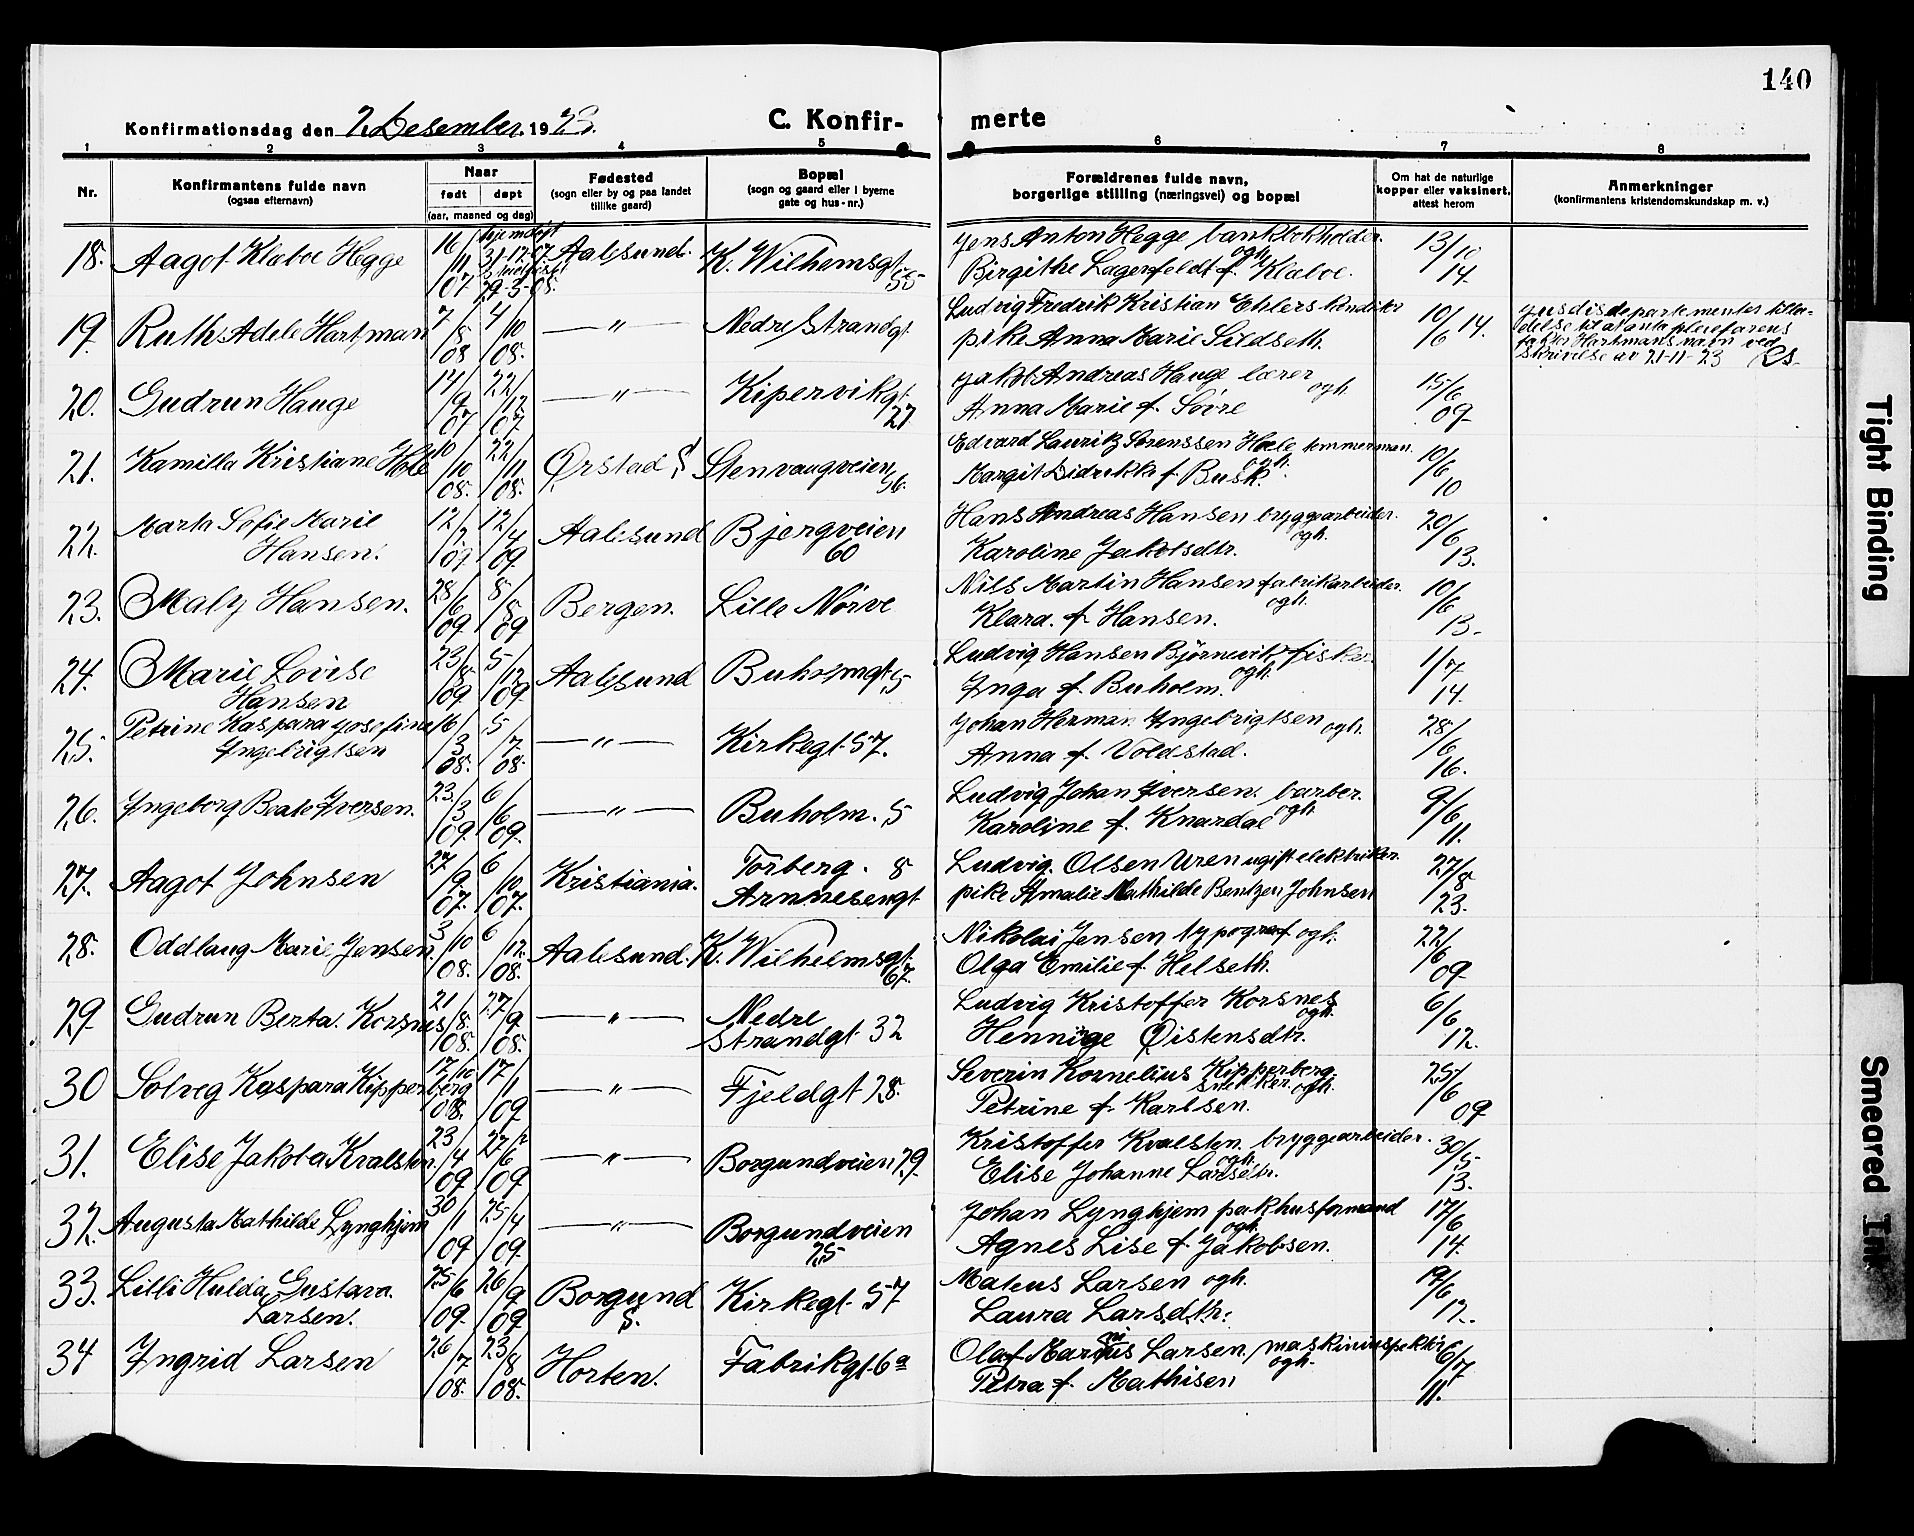 140
Konfirmationsdag den 2 Desember 1923.
C. Konfir-merte
1 2 3 4 5 6 7 8
Nr.
Konfirmantens fulde navn
(ogsaa efternavn)
Naar
født døpt
(aar, maaned og dag)
Fødested
(sogn eller by og paa landet
tillike gaard)
Bopæl
(sogn og gaard eller i byerne
gate og hus-nr.)
Forældrenes fulde navn,
borgerlige stilling (næringsvei) og bopæl
Om hat de naturlige
kopper eller vaksinert,
attest herom
Anmerkninger
(konfirmantens kristendomskundskap m. v.)
18. Aagot Klaboe Hegge 16/11 07 hjemdøpt 31-12-07 stadfest 29-3-08. Aalesund. K. Wilhemsgt 55 Jens Anton Hegge bankbokholder ogh. 13/10 14.
Birgithe Lagenfeldt f. Klaboe.
19. Ruth Adele Hartman 7/5 08 4/10 08. — " — Nedre Strandgt. Ludvig Fredrik Kristian Ehlers konditor 10/6 14.
pike Anna Marie Sildseth.
Jusdisdepartementes tilla-
delse til at anta pleiefarens
Hartmans navn ved
skrivelse av 21-11-23
20. Gudrun Hauge 17/9 07 22/12 07. — " — Kipervikgt. 27 Jakob Andreas Hauge lærer ogh. 15/6 09.
Anna Marie f. Sovre
21. Kamilla Kristiane Hole 10/10 08. 22/11 08. Ørstad S Stenvaagveien 56. Edvard Lauritz Sorenssen Hole tømmerman. ogh. 10/6 10
Margit Didrikke f. Busk.
22. Marta Sofie Marie 12/2 09 12/4 09 Aalesund Bjergveien 60 Hans Andreas Hansen bryggearbeider. ogh. 20/6 13.
Hansen. Karoline Jakobsdtr.
23. Maly Hansen. 28/6 09 8/8 09 Bergen. Lille Nørve Nils Martin Hansen fabrikarbeider. ogh. 10/6 13.
Klara. f. Hansen.
24. Marie Lovise 23/8 09 5/12 09 Aalesund Buholmgt 5 Ludvig Hansen Bjørnevik fisker ogh. 1/7 14.
Hansen Inga f. Buholm.
25. Petrine Kaspara Josefine 16/3 08. 5/7 08. — " — Kirkegt. 57. Johan Herman Ingebrigtsen ogh. 28/6 16.
Ingebrigtsen Anna f. Voldstad.
26. Ingeborg Beate Iversen. 23/3 09. 6/6 09. — " — Buholm. 5 Ludvig Johan Iversen. barber. ogh. 9/6 11.
Karoline f. Knardal
27. Aagot Johnsen 27/9 07. 6/10 07. Kristiania. Torberg. 8 Ludvig. Olsen Uren ugift elektriker. 27/8 23.
Arnnesengt pike Amalie Mathilde Bentzen Johnsen
28. Oddlaug Marie Jensen 3/10 08. 6/12 08. Aalesund. K. Wilhelmsgt. 67. Nikolai Jensen typograf ogh. 22/6 09.
Olga Emilie f. Helseth.
29. Gudrun Berta. Korsnes 21/8 08. 27/9 08. — " — Nedre Ludvig Kristoffer Korsnes ogh. 6/6 12.
Strandgt 32 Hennige Øistensdtr.
30 Solveg Kaspara Kipperberg 17/10 08. 17/1 09 — " — Fjeldgt 28. Severin Kornelius Kipperberg. snekker. ogh. 25/6 09
Petrine f. Karlsen.
31. Elise Jakoba Kvalsten. 23/4 09 27/6 09 — " — Borgundveien 29. Kristoffer Kvalsten. bryggearbeider. ogh. 30/5 13.
Elise Johanne Larsdtr.
32. Augusta Mathilde Lynghjem 30/1 09 25/4 09. — " — Borgundveien 25 Johan Lynghjem pakhusformand ogh. 17/6 14.
Agnes Lise f. Jakobsen.
33. Lilli Hulda Gustava. 25/6 09. 26/9 09 Borgund S. Kirkegt. 57 Mateus Larsen ogh. 19/6 12.
Larsen. Laura Larsdtr.
34 Ingrid Larsen 26/7 08. 23/8 08. Horten. Fabrikgt. 6a Olaf Marinius Larsen. maskininspektør ogh. 6/7 11.
Petra f. Mathisen
Tight Binding
Smeared Ink